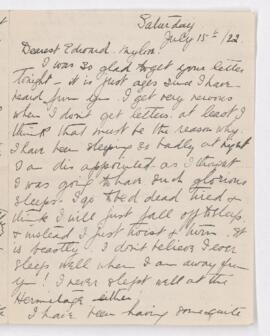 Saturday
July 15th /22
Dearest Edward. Mylove.
I was so glad to get your letter
tonight – it is just ages since I have
heard from you. I get very nervous
when I don't get letters. at least I
think that must be the reason why.
I have been sleeping so badly at night
I am dis appointed as I thought
I was going to have such glorious
sleeps. I go to bed dead tired &
think I will just fall off to sleep.
& instead I just twist & turn. It
is beastly. I don't believe I ever
sleep well when I am away from
you! I never slept well at the
Hermitage either.
I have been having some quite